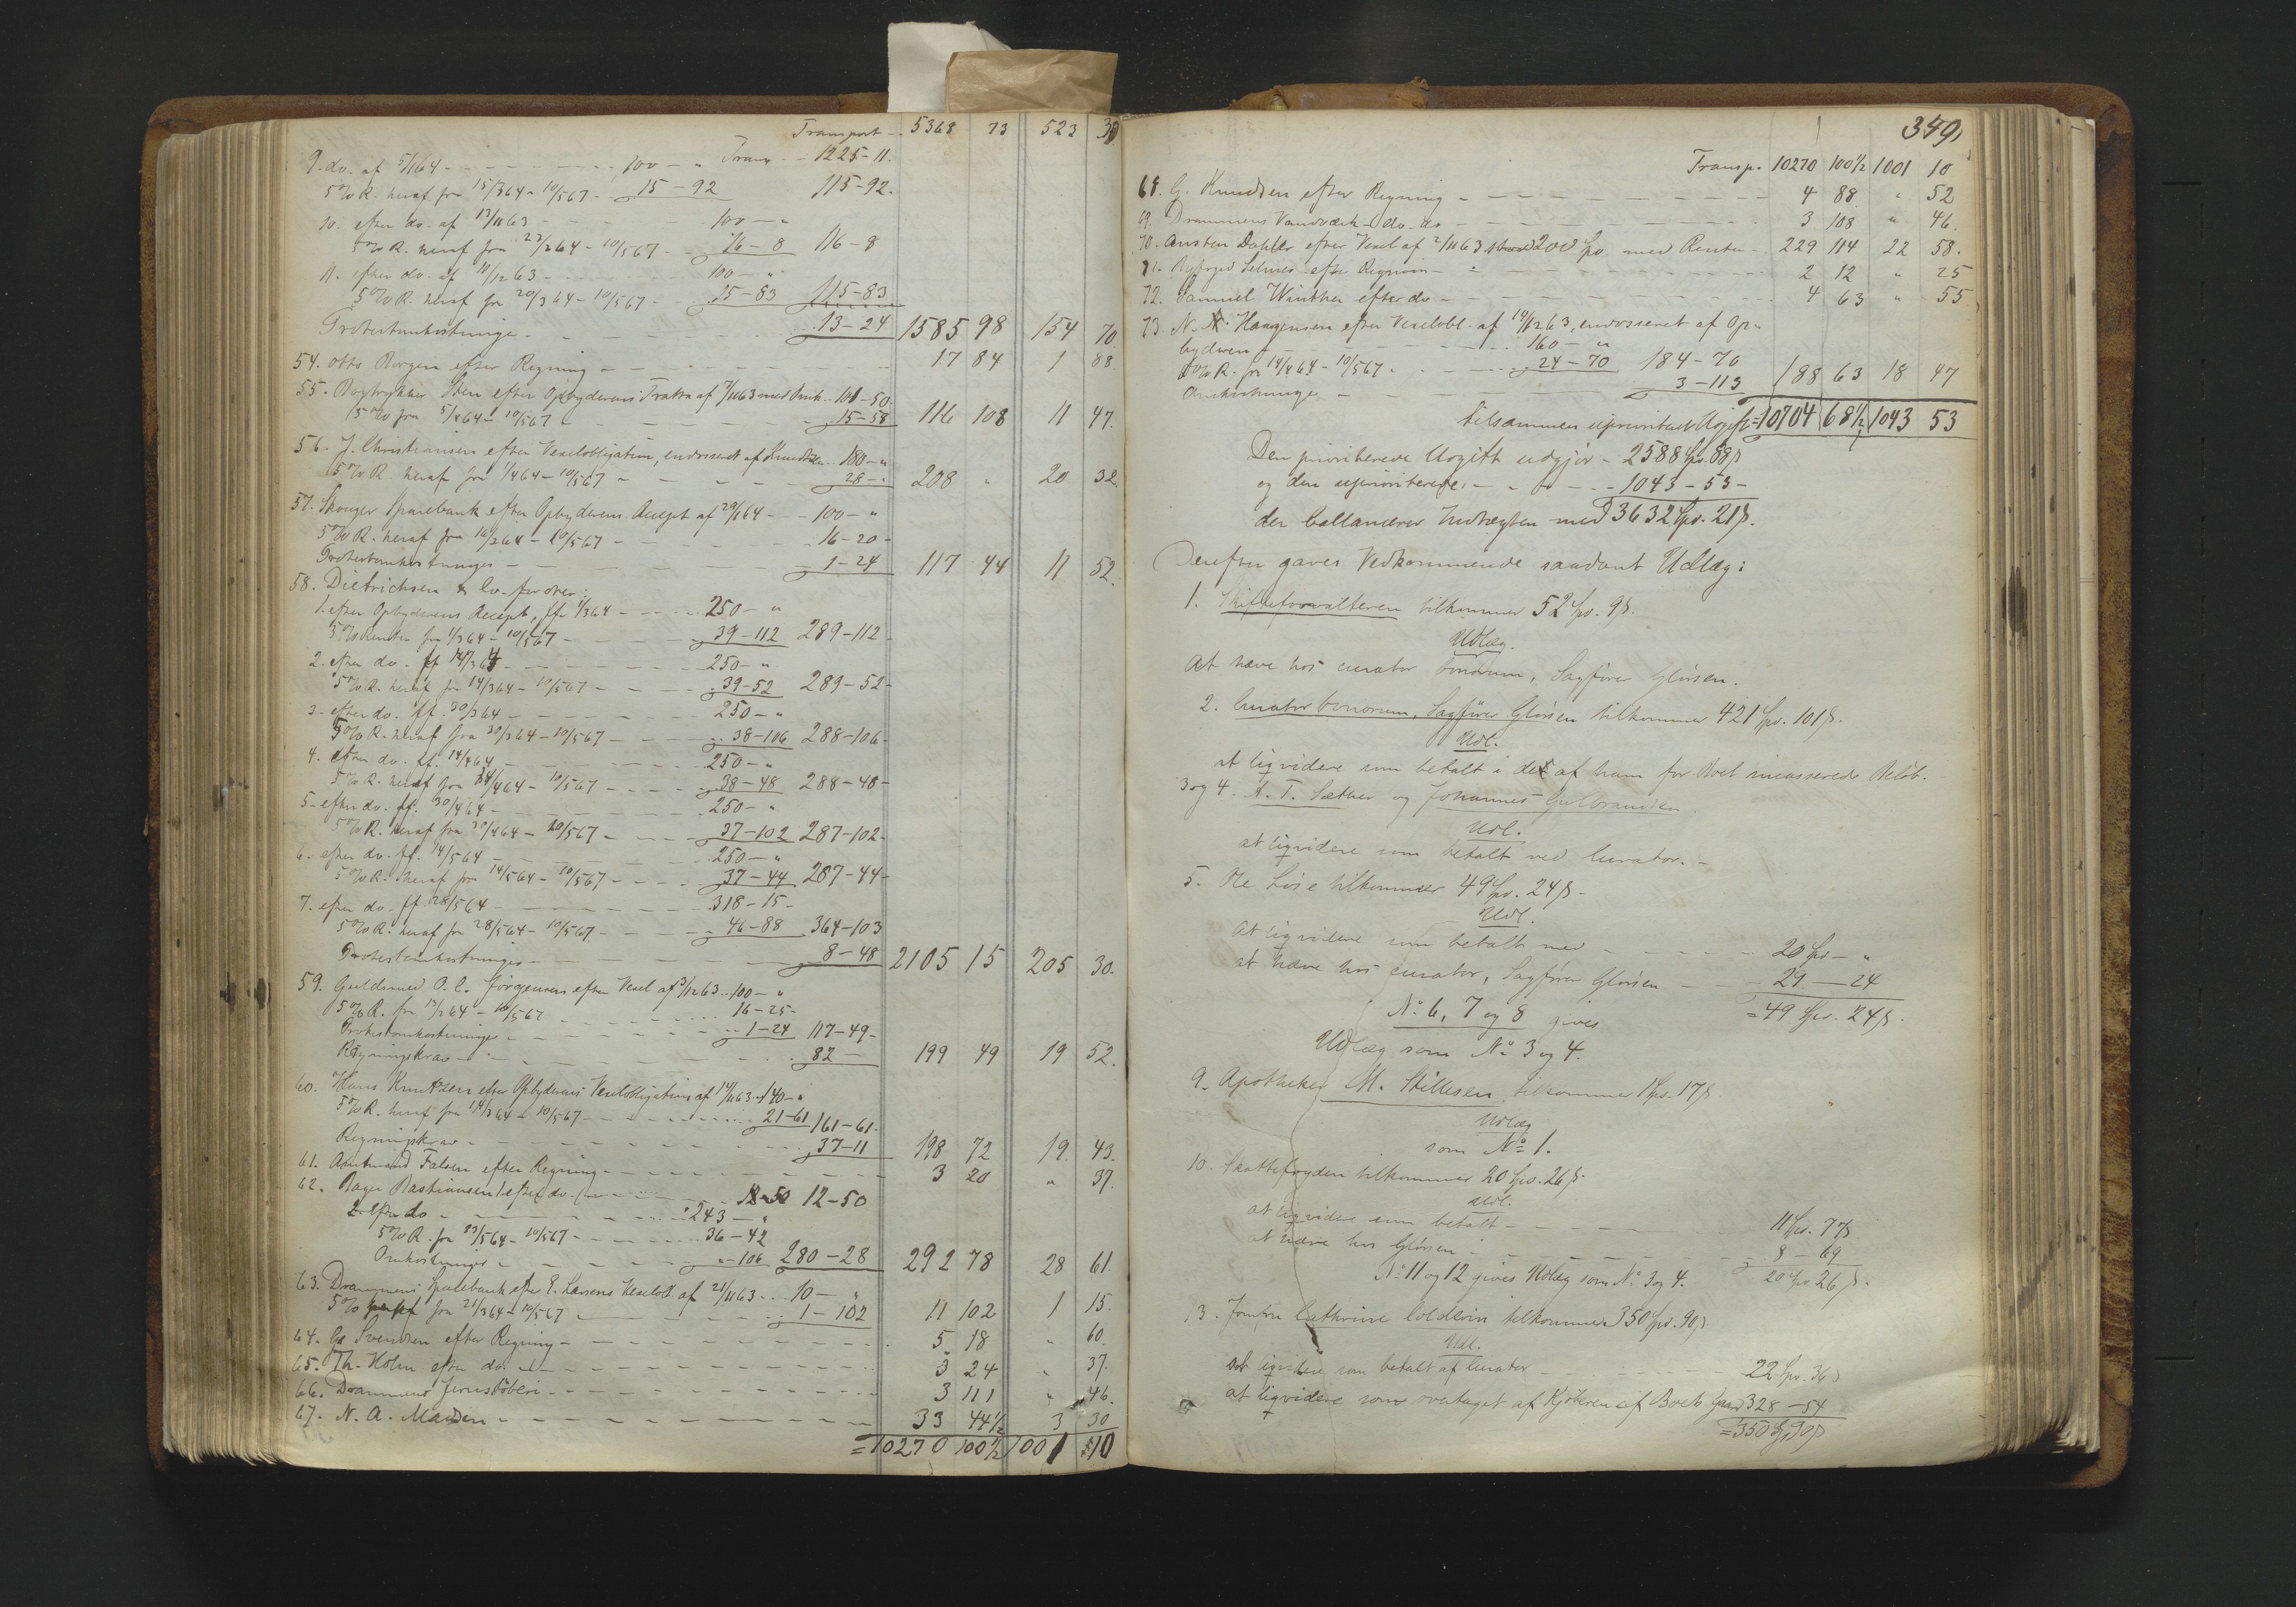 Transport - 5368 73 523 30
9. do. af 5/1 64 - - - 100 - " Transp. - 1225-11.
5% R. heraf fra 15/3 64 - 10/5 67 - 15-92 115-92.
10. efter do. af 13/11 63 - - - 100 - "
5% R. heraf fra 23/2 64 - 10/5 67 - 16-8 116-8
11. efter do. af 11/12 63 - - - 100 - "
5% R. heraf fra 20/3 64 - 10/5 67 - 15-83 115-83
Protestomkostninge - - - 13-24 1585 98 154 70
54. Otto Borgen efter Regning - - - 17 84 1 88
55. Bogtrykker Steen efter Opbyderens Tratta af 7/11 63 med Omk. - 101-50
5% fra 5/4 64 - 10/5 67 - - - 15-58 116 108 11 47.
56. J. Christiansen efter Vexelobligation, endosseret af Knudsen - 180 - "
5% R. heraf fra 1/4 64 - 10/5 67 - - - 28 - " 208 " 20 32.
57. Skouger Sparebank efter Opbyderens Accept af 29/1 64 - - 100 - "
5% R. heraf fra 16/2 64 - 10/5 67 - - - 16-20 -
Protestomkostninger - - - 1-24 117 44 11 52.
58. Dietrichsen & Co. fordrer:
1. efter Opbyderens Accept, ff. 1/3 64 - - - 250 - "
5% Renter fra 1/3 64 - 10/5 67 - - - 39-112 289-112 -
2. efter do. ff 14/3 64 - - - 250 - "
5% R. heraf fra 14/3 64 - 10/5 67 - - - 39-52 289-52 -
3. efter do. ff. 30/3 64 - - - 250 - "
5% R. heraf fra 30/3 64 - 10/5 67 - - - 38-106 288-106 -
4. efter do. ff. 14/4 64 - - - 250 - "
5% R. heraf fra 14/4 64 - 10/5 67 - - - 38-48 288-48 -
5. efter do. ff. 30/4 64 - - - 250 - "
5% R. heraf fra 30/4 64 - 10/5 67 - - - 37-102 287-102 -
6. efter do. ff. 14/5 64 - - - 250 - "
5% R. heraf fra 14/5 64 - 10/5 67 - - - 37-44 287-44 -
7. efter do. ff 28/5 64 - - - 318-15 -
5% R. heraf fra 28/5 64 - 10/5 67 - - - 46-88 364-103
Protestomkostninger - - - 8-48 2105 15 205 30.
59. Guldsmed O. C. Jørgensen efter Vexel af 3/12 63 - 100 - "
5% R. fra 13/2 64 - 10/5 67 - - - 16-25 -
Protestomkostninger - - - 1-24 117-49 -
Regningskrav - - - 82 - 199 49 19 52.
60. Hans Knudsen efter Opbyderens Vexelobligation af 14/11 63 - 140 - "
5% R. heraf fra 14/3 64 - 10/5 67 - - - 21-61 161-61 -
Regningskrav - - - 37-11 198 72 19 43.
61. Amtmand Falsen efter Regning - - - 3 20 " 37.
62. Bager Bastiansen 1. efter do - - - 12-50 12-50
2. efter do - - - 243 - "
5% R. fra 23/5 64 - 10/5 67 - - - 36-42
Omkostninger - - - "-106 280-28 292 78 28 61.
63. Drammens Sparebank efter E. Larsens Vexelobl. af 21/11 63 - - 10 - "
5% fra 21/3 64 - 10/5 67 - - - 1-102 11 102 1 15.
64. Svendsen efter Regning - - - 5 18 " 60.
65. Th. Holm efter do. - - - 3 24 " 37.
66. Drammens Jernstøberi - - - 3 111 " 46.
67. N. A. Madsen - - - 33 44½ 3 30
= 10270 100½ 1001 10
349
Transp. 10270 100½ 1001 10
68. G. Knudsen efter Regning - - - 4 88 " 52
69. Drammens Vandværk do. do - - - 3 108 " 46.
70. Austen Dahler efter Vexel af 2/11 63 200 Spd. med Renter - 229 114 22 58.
71. Byfoged Selmer efter Regning - - - 2 12 " 25
72. Samuel Winther efter do - - - 4 63 " 55
73. N. N. Haagensen efter Vexelobl. af 14/12 63, endosseret af Op-
byderen - - - 160 - "
5% R. fra 14/4 64 - 10/5 67 - - - 24-70 184-70
Omkostninge - - - 3-113 188 63 18 47
tilsammen uprioriteret Udgift = 10704 68½ 1043 53
Den prioriterede Udgift udgjør - 2588 Spd. 88 s
og den uprioriterede - - - 1043-53 -
der ballancerer Indtægten med 3632 Spd. 21 s.
Derefter gaves Vedkommende saadant Udlæg:
1. Skifteforvalteren tilkommer 52 Spd. 9 s.
Udlæg.
At hæve hos curator bonorum, Sagfører Glørsen.
2. Curator bonorum, Sagfører Glørsen tilkommer 421 Spd. 101 s.
Udl.
at liqvidere som betalt i det af ham for Boet incasserede Beløb.
3 og 4. A. T. Sæther og Johannes Gulbrandsen.
Udl.
at liqvidere som betalt ved Curator. -
5. Ole Løse tilkommer 49 Spd. 24 s -
Udl.
At liqvidere som betalt med - - - 20 Spd - "
at hæve hos curator, Sagfører Glørsen - - 29 - 24
= 49 Spd. 24 s.
No. 6, 7 og 8 gives
Udlæg som No. 3 og 4.
9. Apotheker M. Stillesen tilkommer 1 Spd. 17 s
Udlæg
som No. 1.
10. Skattefogden tilkommer 20 Spd. 26 s.
Udl.
at liqvidere som betalt - - - 11 Spd. 77 s
at hæve hos Glørsen - - - 8 - 69
20 Spd 26 s.
No. 11 og 12 gives Udlæg som No. 3 og 4.
13. Jomfru Cathrine Colderin tilkommer 350 Spd. 90 s
Udl.
at liqvidere som betalt af Curator - - - 22 Spd. 36 s
at liqvidere som overtaget af Kjøberen af Boets Gaard 328 - 54
= 350 Spd 90 s